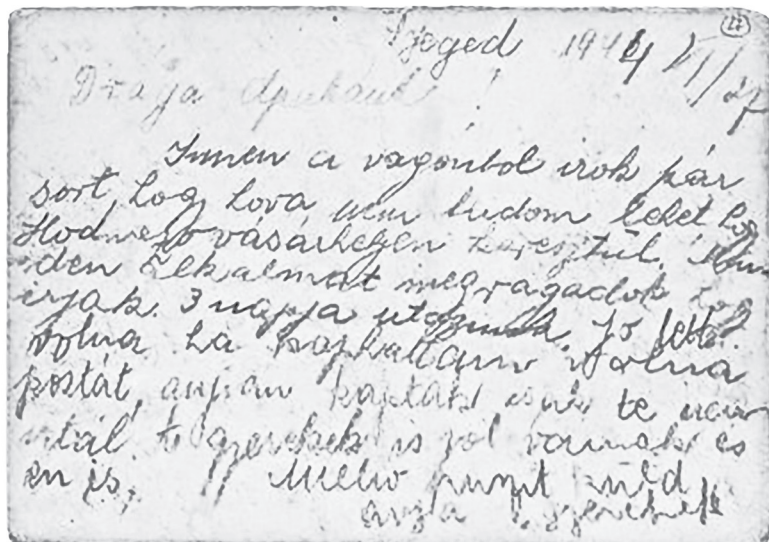 27
Szeged 1944 VI/27
Drága Apukánk!
Innen a vagónbol irok pár
sort, hog hova nem tudom lehet hog
Hodmezővásárhelyen keresztül. Min
den alkalmat megragadok hog
irjak. 3 napja utazunk. Jo lett
volna ha kaphattam volna
postát, kaptak csak te nem
irtál. A gyerekek is jol vannak és
én is. Millio puszit küld
anya gyerekek